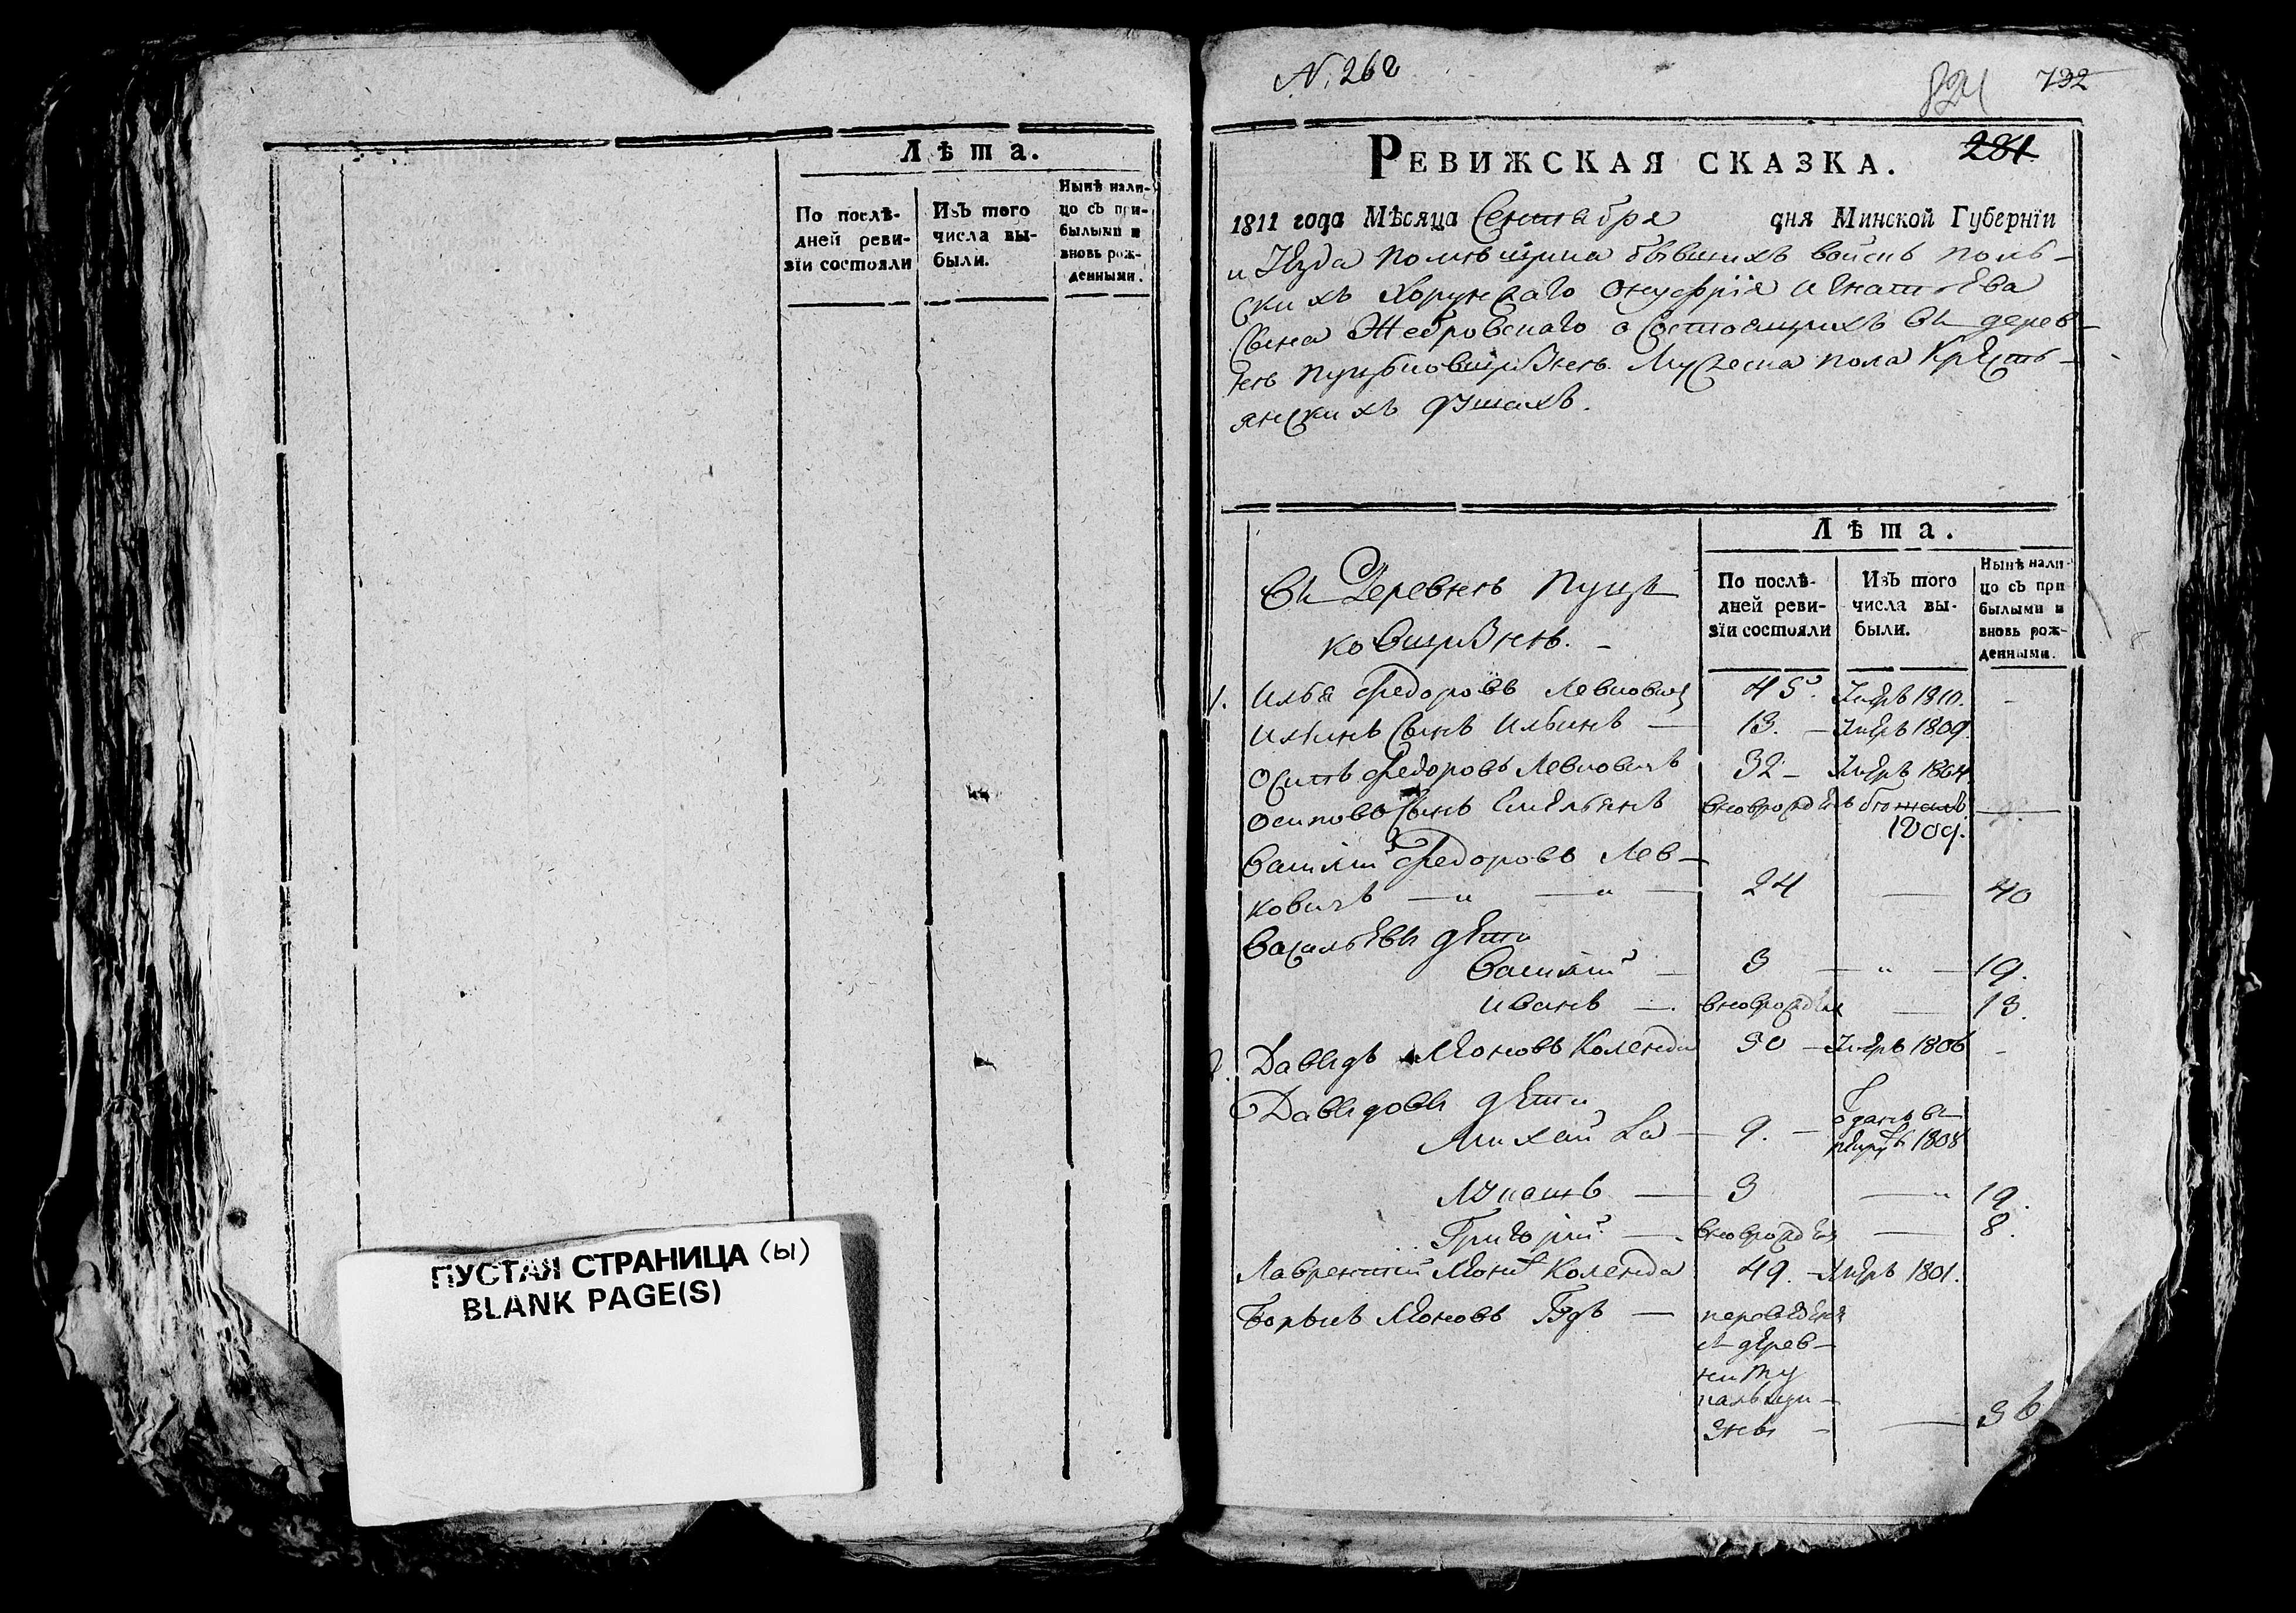 Лѣта.
По послѣ-
дней реви-
зїи состояли
Изъ того
числа вы-
были.
Нынѣ нали-
цо съ при-
былыми и
вновь рож-
денными.
ПУСТАЯ СТРАНИЦА (ы)
BLANK PAGE(S)
N. 262
821 732
РЕВИЖСКАЯ СКАЗКА. 281
1811 года Мѣсяца Сентября дня Минской Губернїи
и Уезда помѣщика бывшихъ войскъ поль-
скихъ Хорунжаго Онуфрїя Игнатьева
сына Жебровскаго о состоящихъ въ дерев-
нѣ Мужеска пола Кресть-
янскихъ душахъ.
Лѣта.
По послѣ-
дней реви-
зїи состояли
Изъ того
числа вы-
были.
Нынѣ нали-
цо съ при
былыми и
вновь рож-
денными.
Въ Деревнѣ Пуцъ
ковщизнѣ.
1. Илья Федоровъ Левковичъ 45. Умеръ 1810. -
Ильинъ сынъ Ильинъ — 13. — Умеръ 1809.
Осипъ Федоровъ Левковичъ 32 - Умеръ 1804
Осиповъ сынъ Емельянъ вновьрожденъ
1809.
Василий Федоровъ Лев-
ковичъ — " — " — 24 — 40
Васильевы дети
Василий — 3 — " — 19.
Иванъ — вновьрожден — 13.
2. Давыдъ Леоновъ Коленда 50 — Умеръ 1806 -
Давыдовы дети
Михайла — 9. — отданъ въ
рекруты 1808
Лукашъ — 3 — " 19.
Григорий — вновьрожден — 8.
Лаврентий Леонов Коленда 49. — Умеръ 1801.
Борысъ Леоновъ — переведенъ
з дерев-
ни Ту
пальщи-
зны - — 36